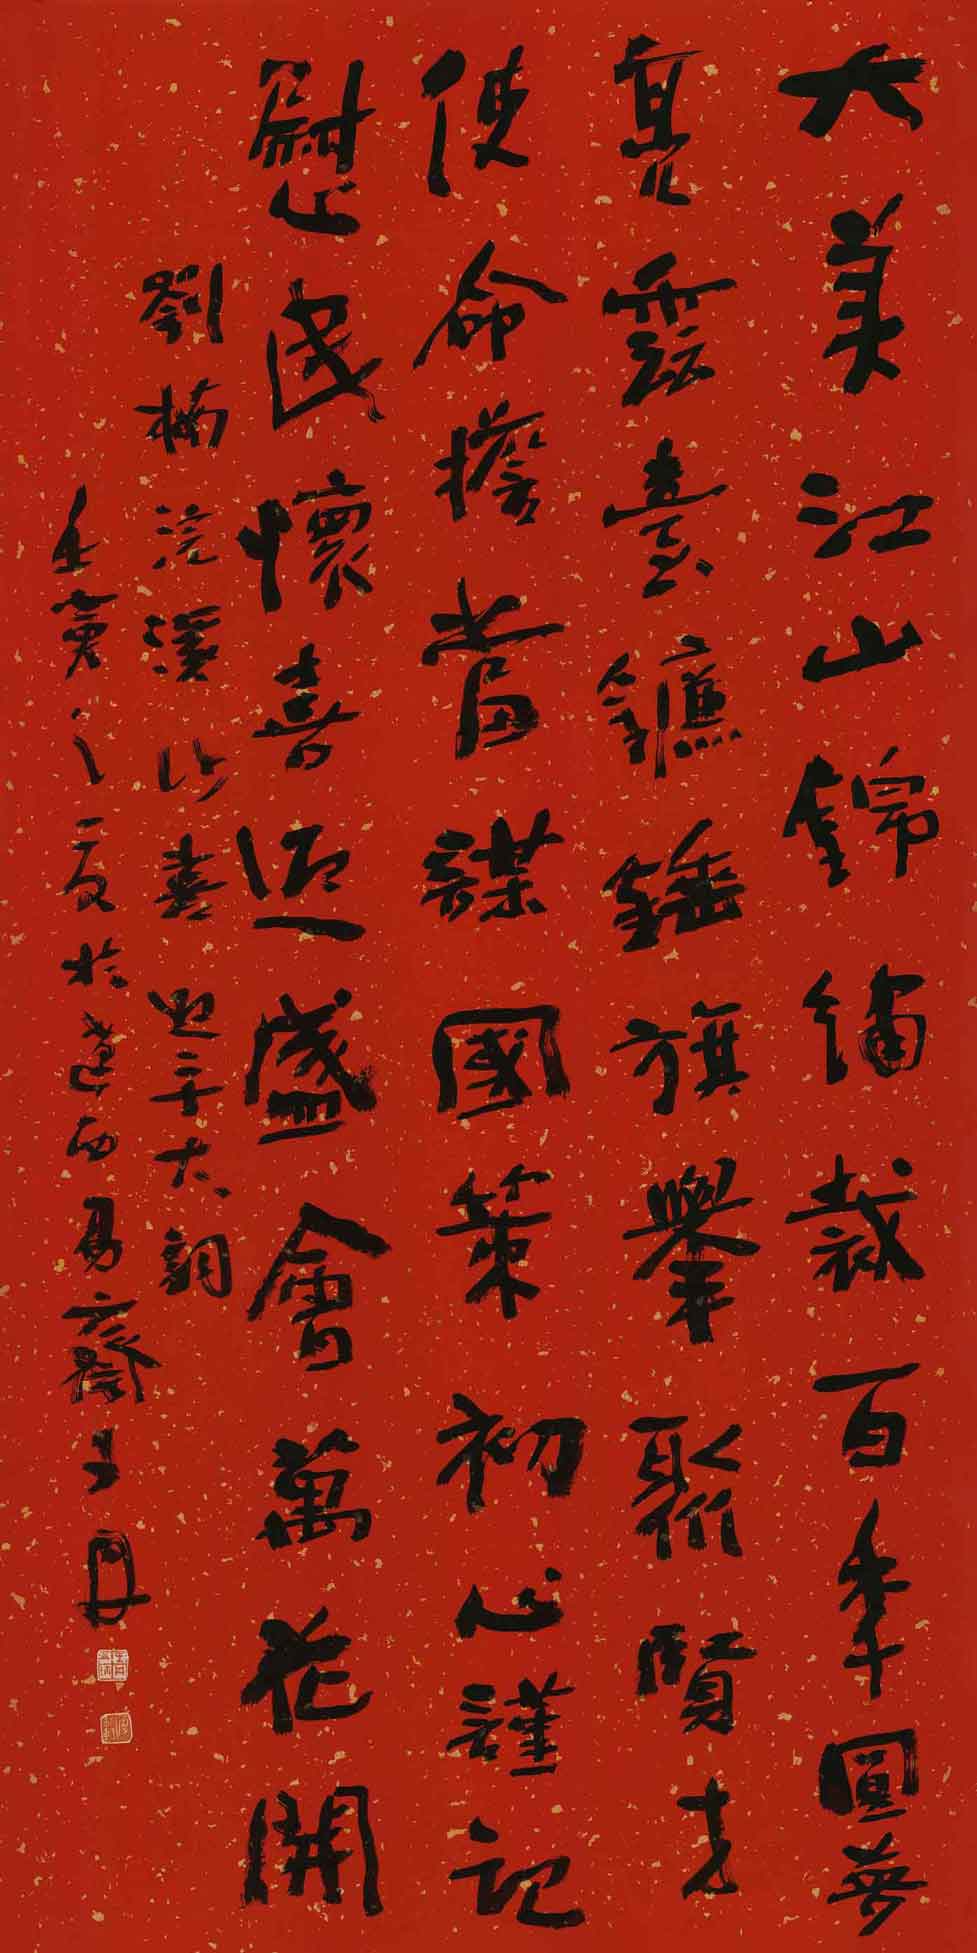 大美江山錦繡裁百年圓夢
亮雲臺鐮錘旗舉聚賢才
使命擔當謀國策初心謹記
慰民懷喜迎盛會萬花開
劉楠浣溪沙喜迎二十大詞
壬寅之夏於西易齋王丹